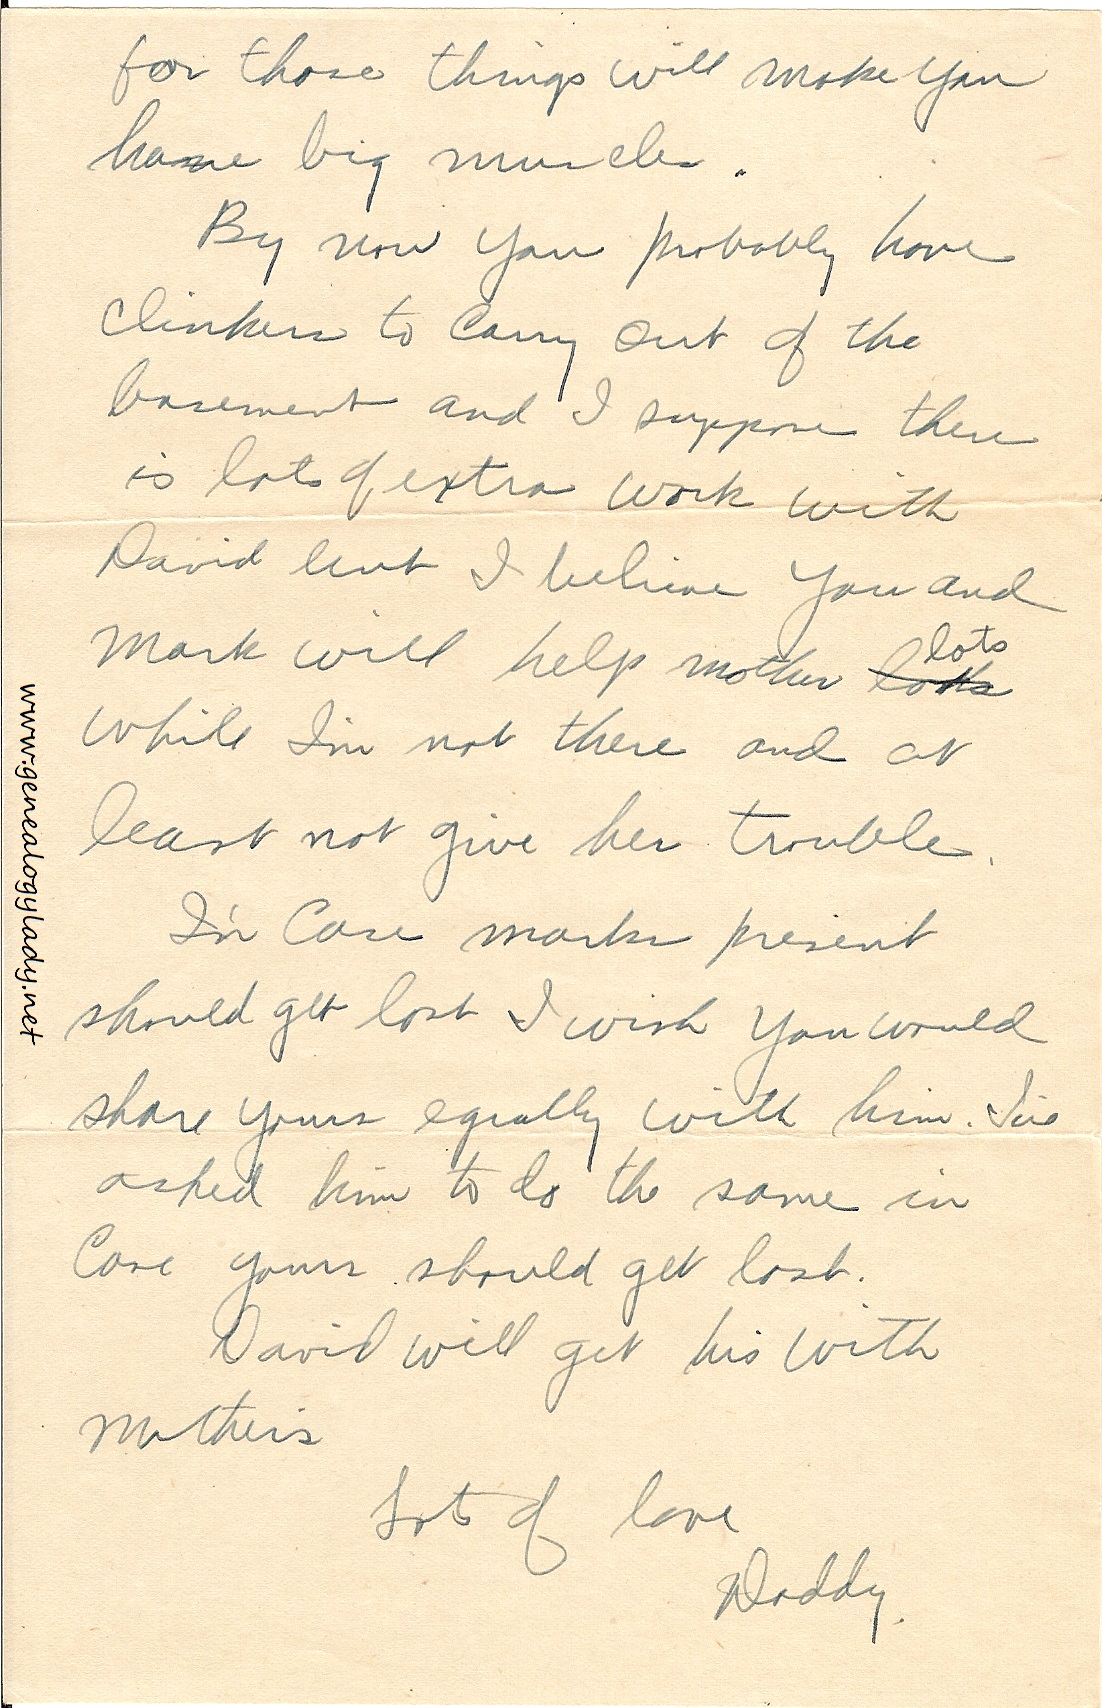 for those things will make you
have big muscles.
By now you probably have
clinkers to carry out of the
basement and I suppose there
is lots of extra work with
David but I believe you and
Mark will help mother lots
while I'm not there and at
least not give her trouble.
In case Marks present
should get lost I wish you would
share yours equally with him. I've
asked him to do the same in
case yours should get lost.
David will get his with
Mothers
Lots of love
Daddy.
www.genealogylady.net